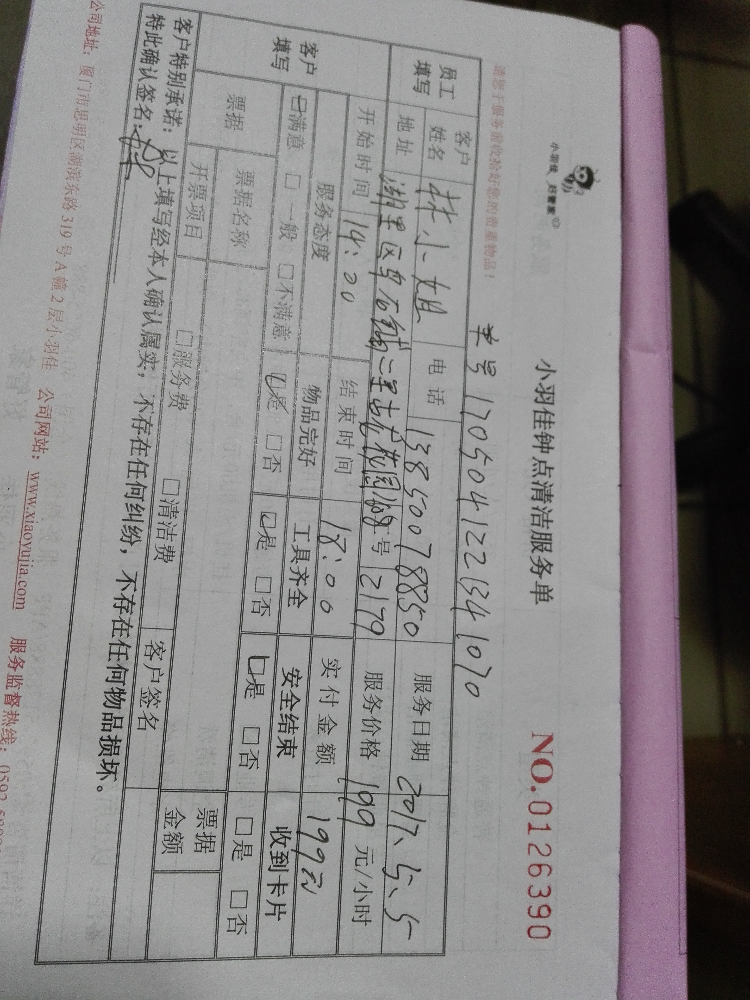 小羽佳 好管家
小羽佳钟点清洁服务单
NO.0126390
请您于服务前收拾好您的贵重物品！
单号1705041221341070
员工填写 客户姓名 林小姐 电话 13850078850 服务日期 2017、5、5
地址 湖里区 号 2179 服务价格 199 元/小时
客户填写 开始时间 14:00 结束时间 18:00 实付金额 199元
服务态度 物品完好 工具齐全 安全结束 收到卡片
☑满意 □一般 □不满意 ☑是 □否 ☑是 □否 ☑是 □否 □是 □否
票据 票据名称 票据金额
开票项目 □服务费 □清洁费 客户签名
客户特别承诺：以上填写经本人确认属实，不存在任何纠纷，不存在任何物品损坏。
特此确认签名：
公司地址：厦门市思明区湖滨东路319号A幢2层小羽佳 公司网站：www.xiaoyujia.com 服务监督热线：0592